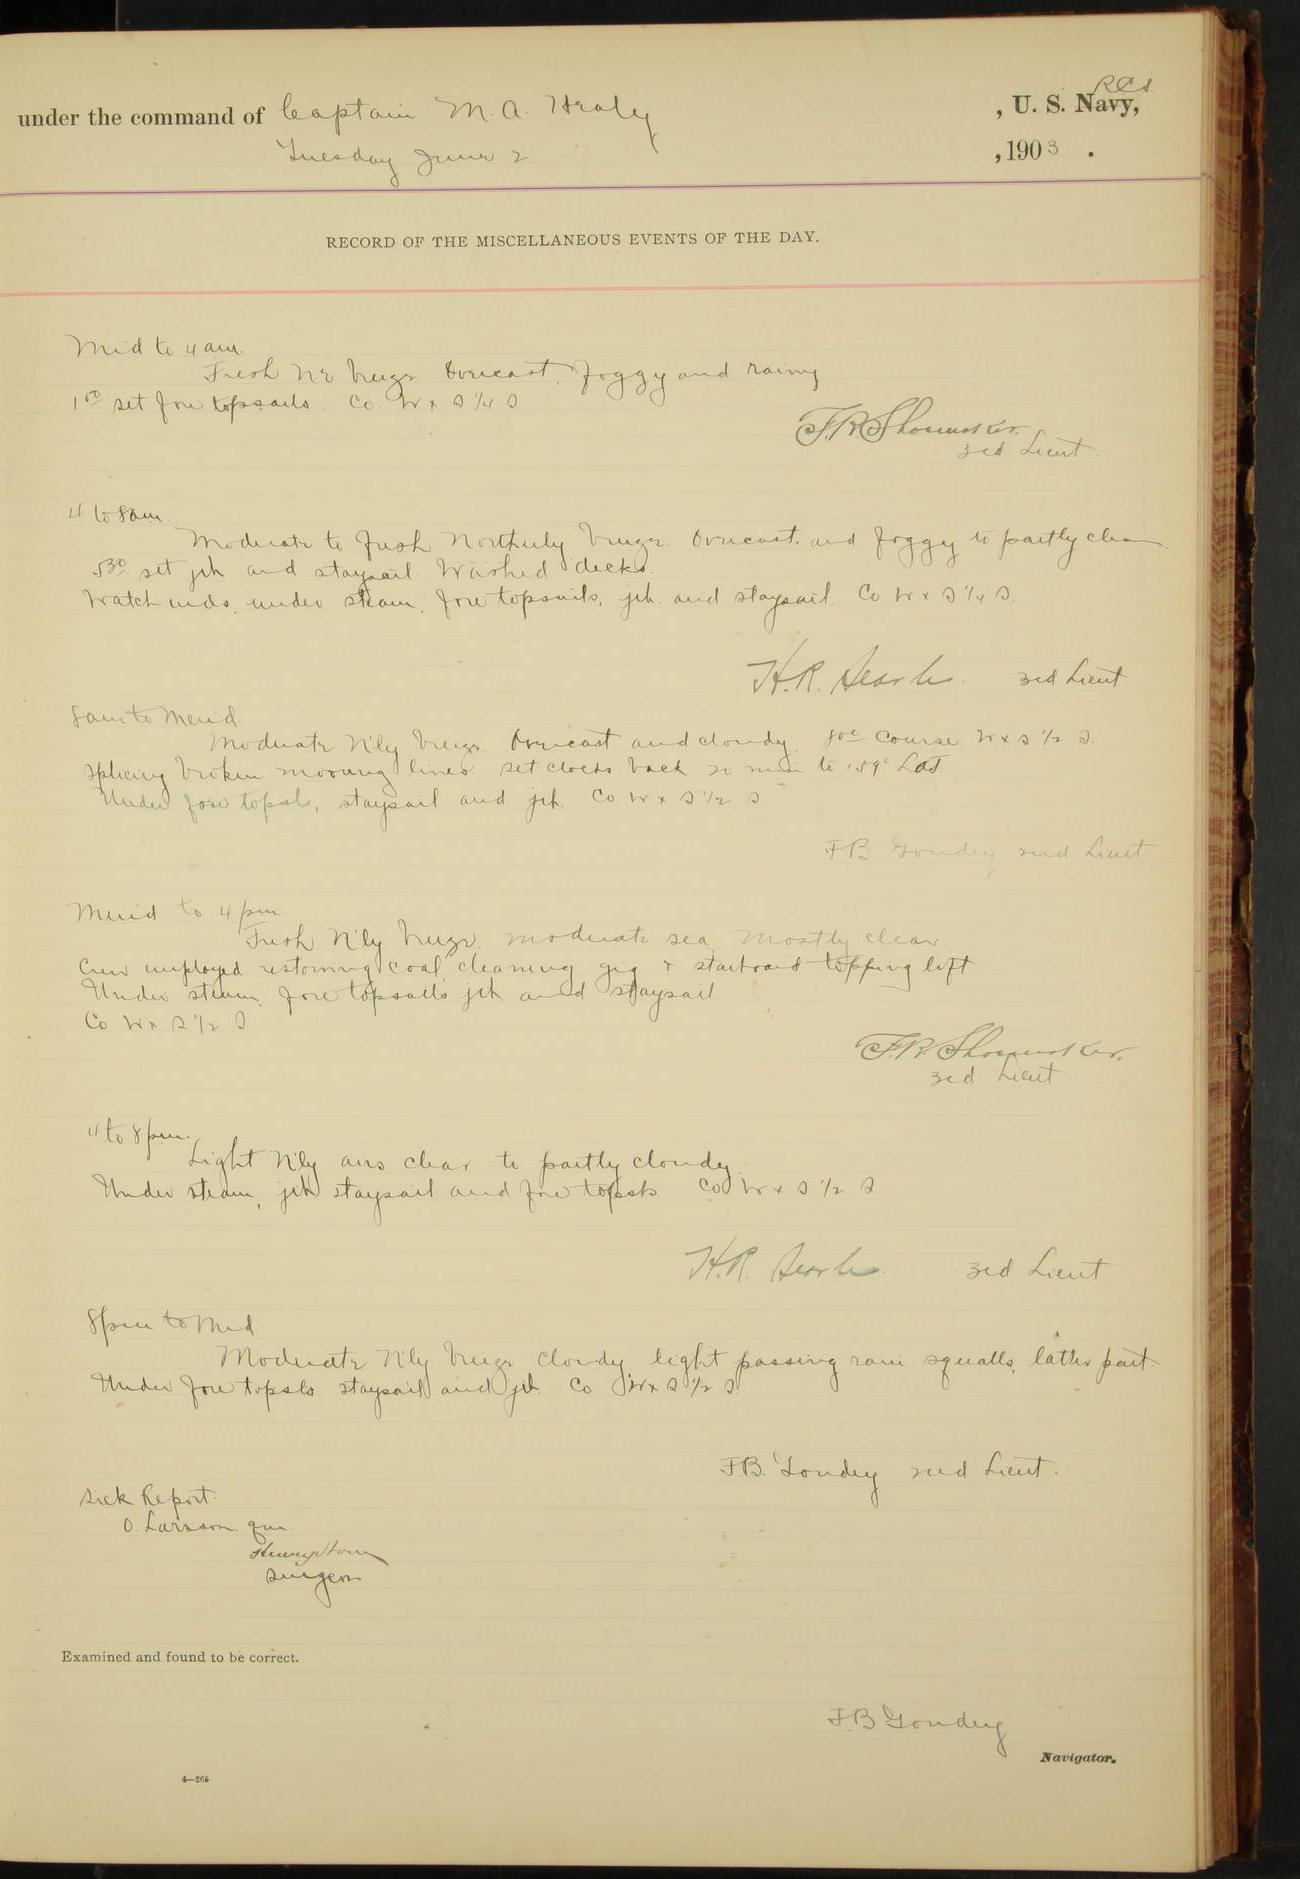 under the command of Captain M. A. Healy , U. S. Navy, RCS
Tuesday June 2 , 1903 .
RECORD OF THE MISCELLANEOUS EVENTS OF THE DAY.
Mid to 4 am.
Fresh NE breeze Overcast, foggy and rainy
1 00 set fore topsails Co. W x S 1/4 S
F.R. Shoemaker.
3rd Lieut.
4 to 8 am.
Moderate to fresh Northerly breeze. Overcast, and foggy to partly clear.
5 30 set jib and staysail. Washed decks.
Watch ends, under steam, fore topsails, jib and staysail. Co W x S 1/4 S.
H.R. Searle. 3rd Lieut.
8 am to Merid.
Moderate N'ly breeze Overcast and cloudy. 8 00 Course W x S 1/2 S.
splicing broken mooring lines set clocks back 20 min to 159°
Under fore topsls, staysail and jib. Co W x S 1/2 S.
F.B. Goudey, 2nd Lieut
Merid to 4 pm
Fresh N'ly breeze, moderate sea, Mostly clear.
Crew employed restowing coal, cleaning gig & starboard topping lift
Under steam, fore topsails jib and staysail.
Co W x S 1/2 S.
F.R. Shoemaker.
3rd Lieut.
4 to 8 pm.
Light N'ly airs clear to partly cloudy.
Under steam, jib staysail and fore topsls. Co W x S 1/2 S
H.R. Searle. 3rd Lieut
8 pm to Mid
Moderate N'ly breeze cloudy light passing rain squalls, latter part.
Under fore topsls staysail and jib. Co W x S 1/2 S.
F.B. Goudey 2nd Lieut.
Sick Report.
O. Larsson. qm.
Surgeon
Examined and found to be correct.
F.B Goudey
Navigator.
4—265